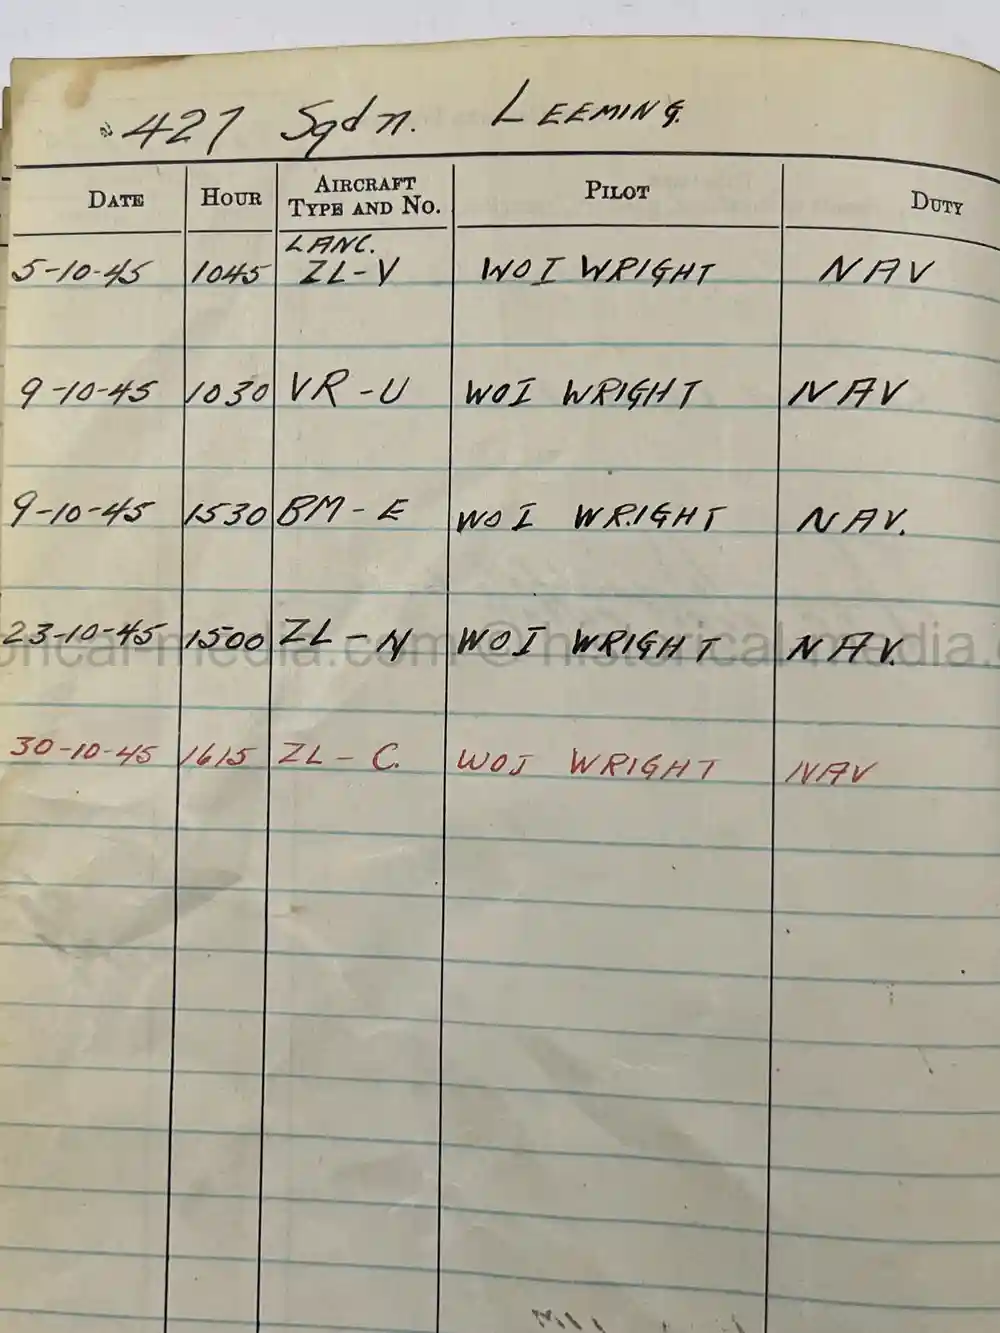 427 Sqdn. LEEMING.
DATE HOUR AIRCRAFT TYPE AND NO. PILOT DUTY
LANC.
5-10-45 1045 ZL-V WOI WRIGHT NAV
9-10-45 1030 VR-U WOI WRIGHT NAV
9-10-45 1530 BM-E WOI WRIGHT NAV.
23-10-45 1500 ZL-N WOI WRIGHT NAV.
30-10-45 1615 ZL-C. WOI WRIGHT NAV